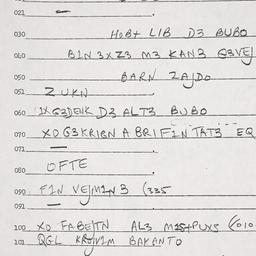 021 —
030 HOBT LIB D3 BUBO
040 BIN 3XZ3 M3 KAN3 Q3VEJ
050 BARN ZAJDO
051 ZUKN
060 D3 ALT3 BUBO
070 XO G3KRIBN A BRIF IN TAT3 EQ
071 —
080 OFTE
090 FIN VEJMIN3 (335
091 —
100 XO FABEJTN AL3 (010
101 QGL BAKANTO